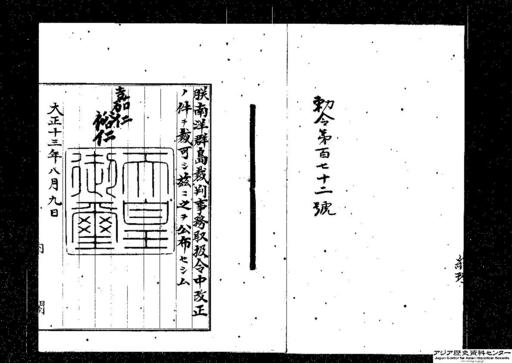 勅令第百七十二號
朕南洋群島裁判事務取扱令中改正
ノ件ヲ裁可シ茲ニ之ヲ公布セシム
嘉仁
裕仁
天皇
御璽
大正十三年八月九日
内閣
アジア歴史資料センター
Japan Center for Asian Historical Records